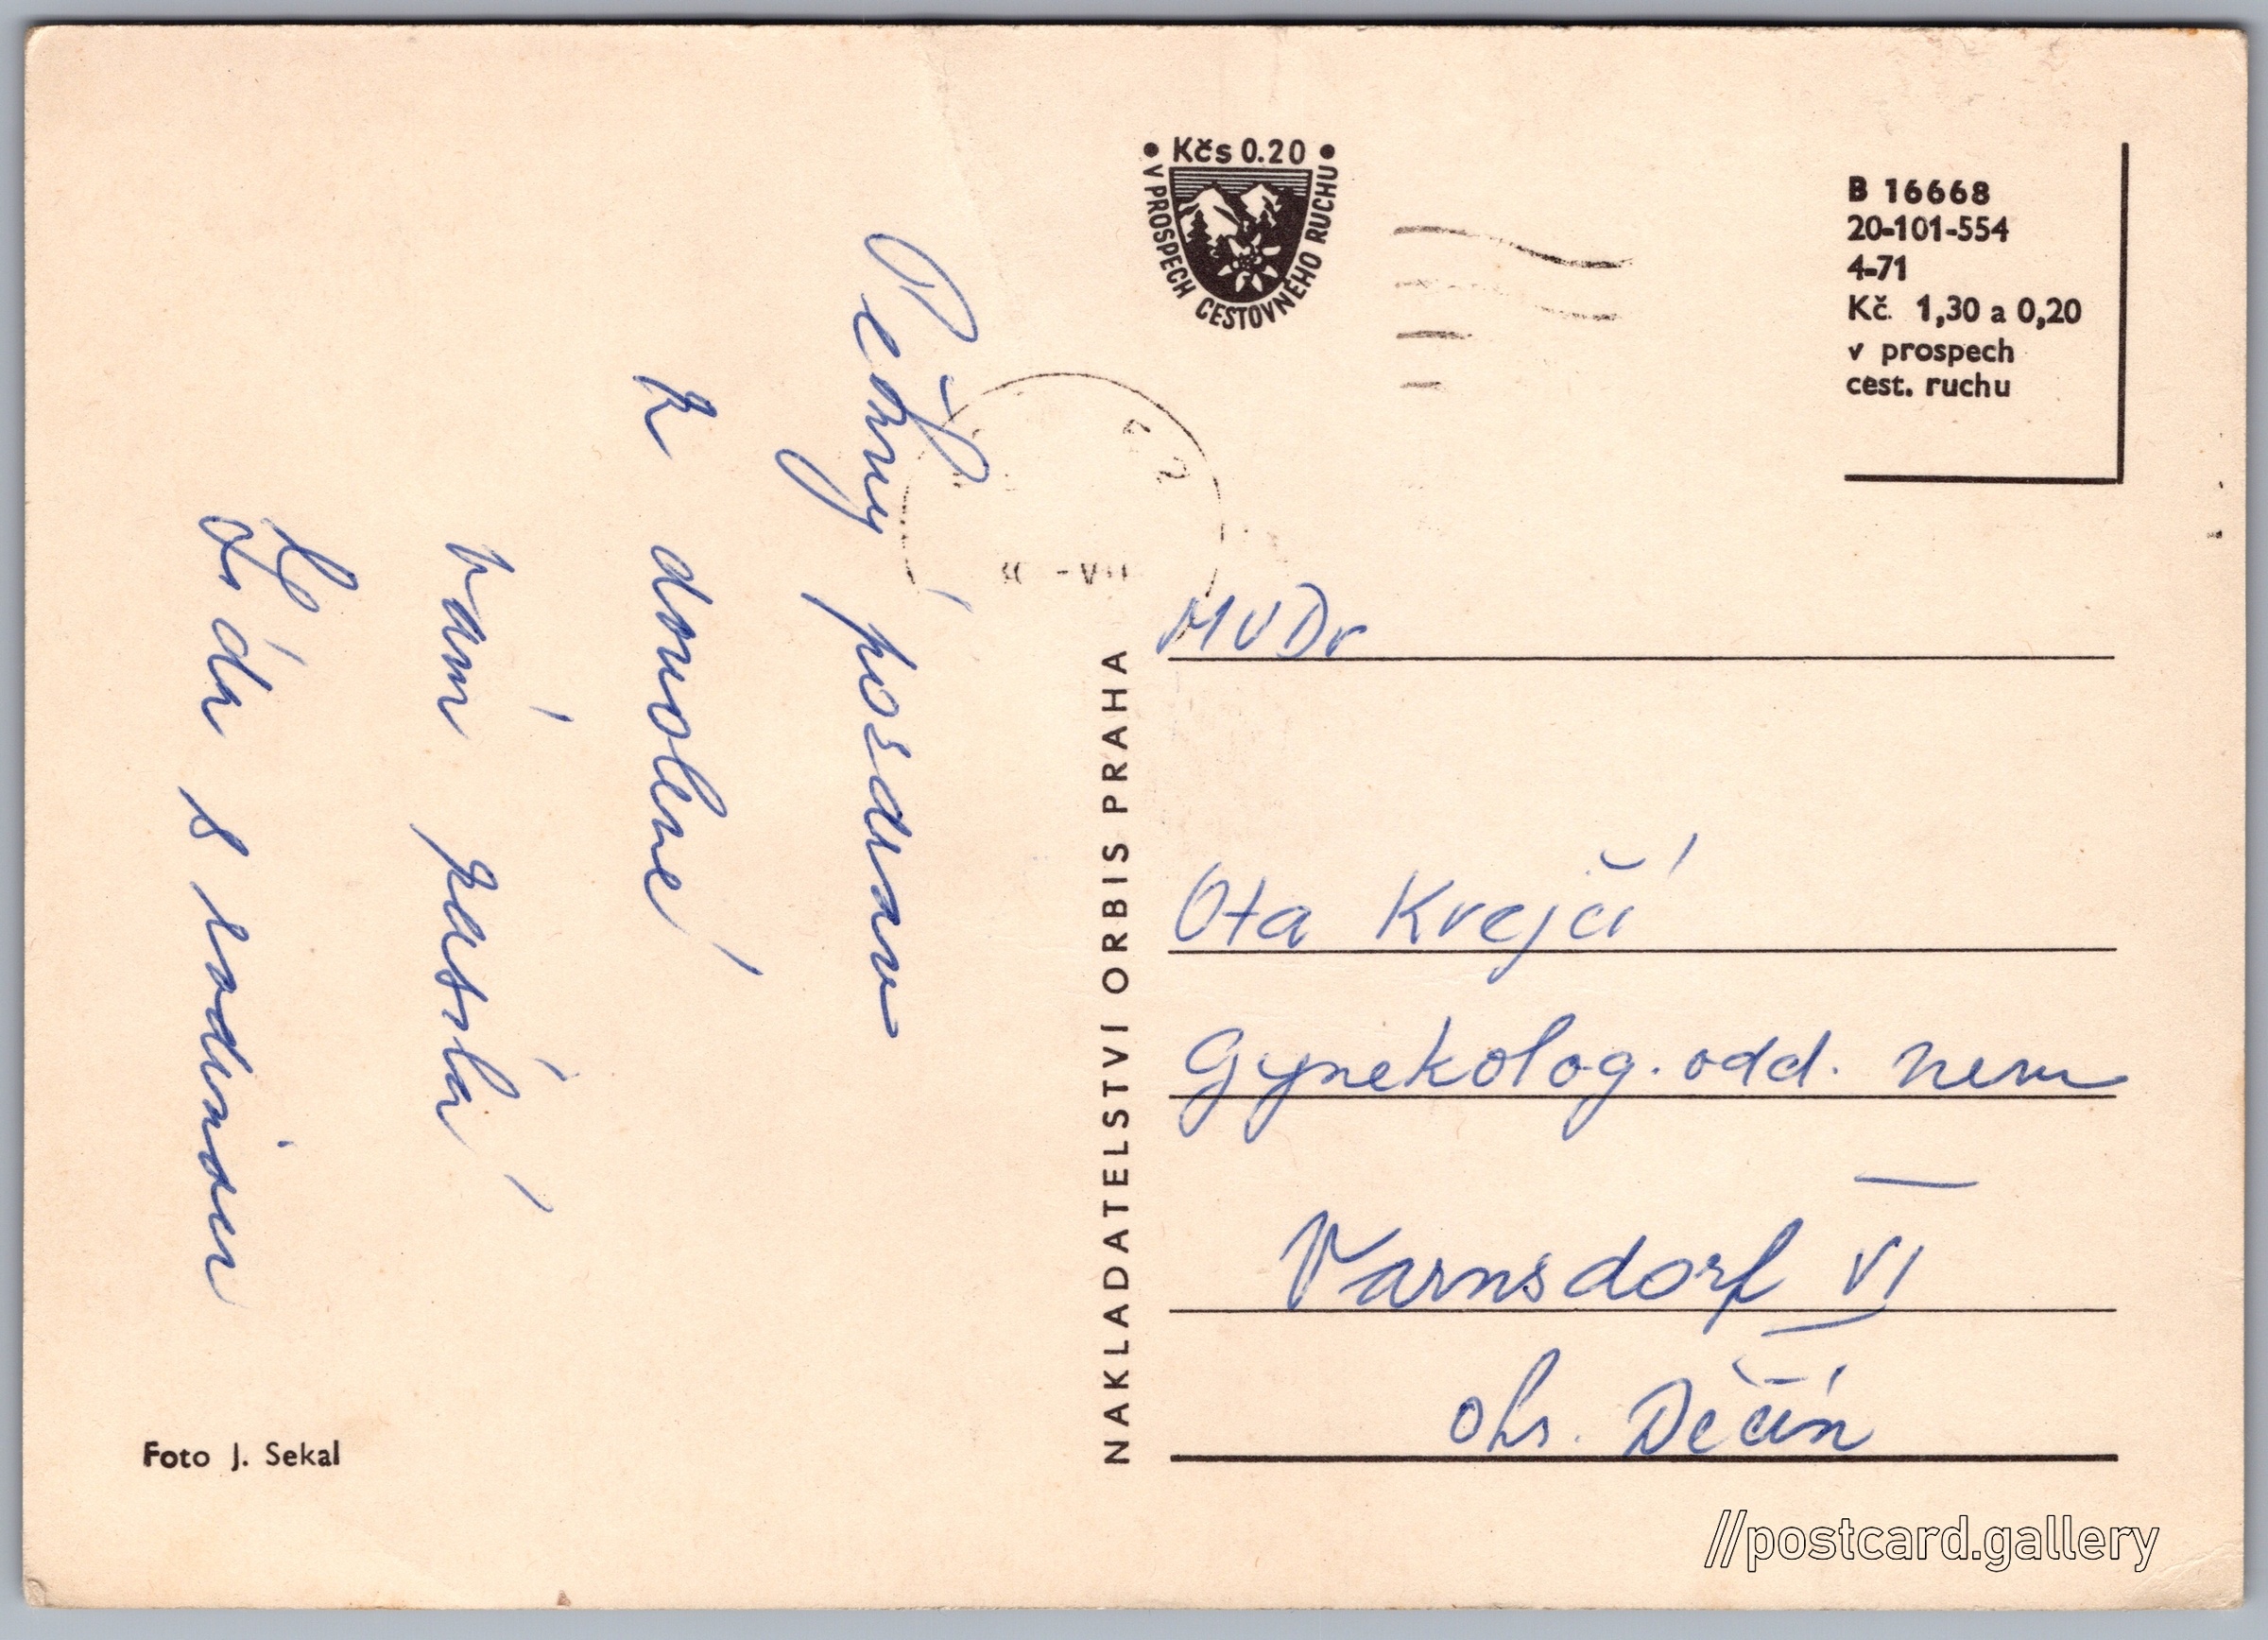 Pěkný pozdrav
z dovolené
vám zasílá
Láda s rodinou
Foto J. Sekal
NAKLADATELSTVÍ ORBIS PRAHA
• Kčs 0.20 •
V PROSPECH CESTOVNÉHO RUCHU
B 16668
20-101-554
4-71
Kč. 1,30 a 0,20
v prospech
cest. ruchu
MUDr
Ota Krejčí
Gynekolog. odd. nem
Varnsdorf VI
okr. Děčín
//postcard.gallery